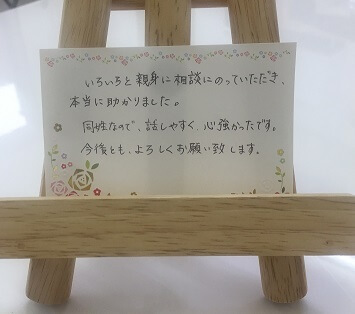 いろいろと親身に相談にのっていただき、
本当に助かりました。
同姓なので、話しやすく、心強かったです。
今後とも、よろしくお願い致します。